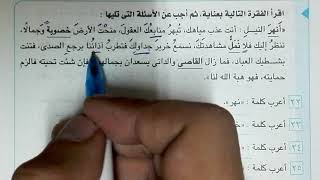 اقرأ الفقرة التالية بعناية، ثم أجب عن الأسئلة التي تليها :
«أنهرَ النيل : أنت عذب مياهك، تبهرُ منابعُك العقول، منحْتَ الأرضَ خصوبةً وجمالًا،
ننظرُ إليك فلا نَمَلُّ مشاهدتَك، نسمعُ خريرَ جداولِك فتطربُ آذانُنا برجع الصدى، فتنت
بشطيك العباد، فما زال القاصي والداني يسعدان بجمالك، فإن شئت تحيته فالزم
حمايته، فهو هبة الله لنا».
٢٢ أعرب كلمة : «نهر».
٢٣ أعرب كلمة
٢٤ أعرب
٢٥ أعرب كلمة